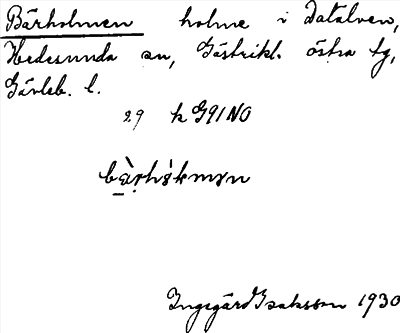 Bärholmen holme i Dalälven,
Hedesunda sn, Gästrikl. östra tg,
Gävleb. l.
29 k G91NO
Ingegärd Isaksson 1930